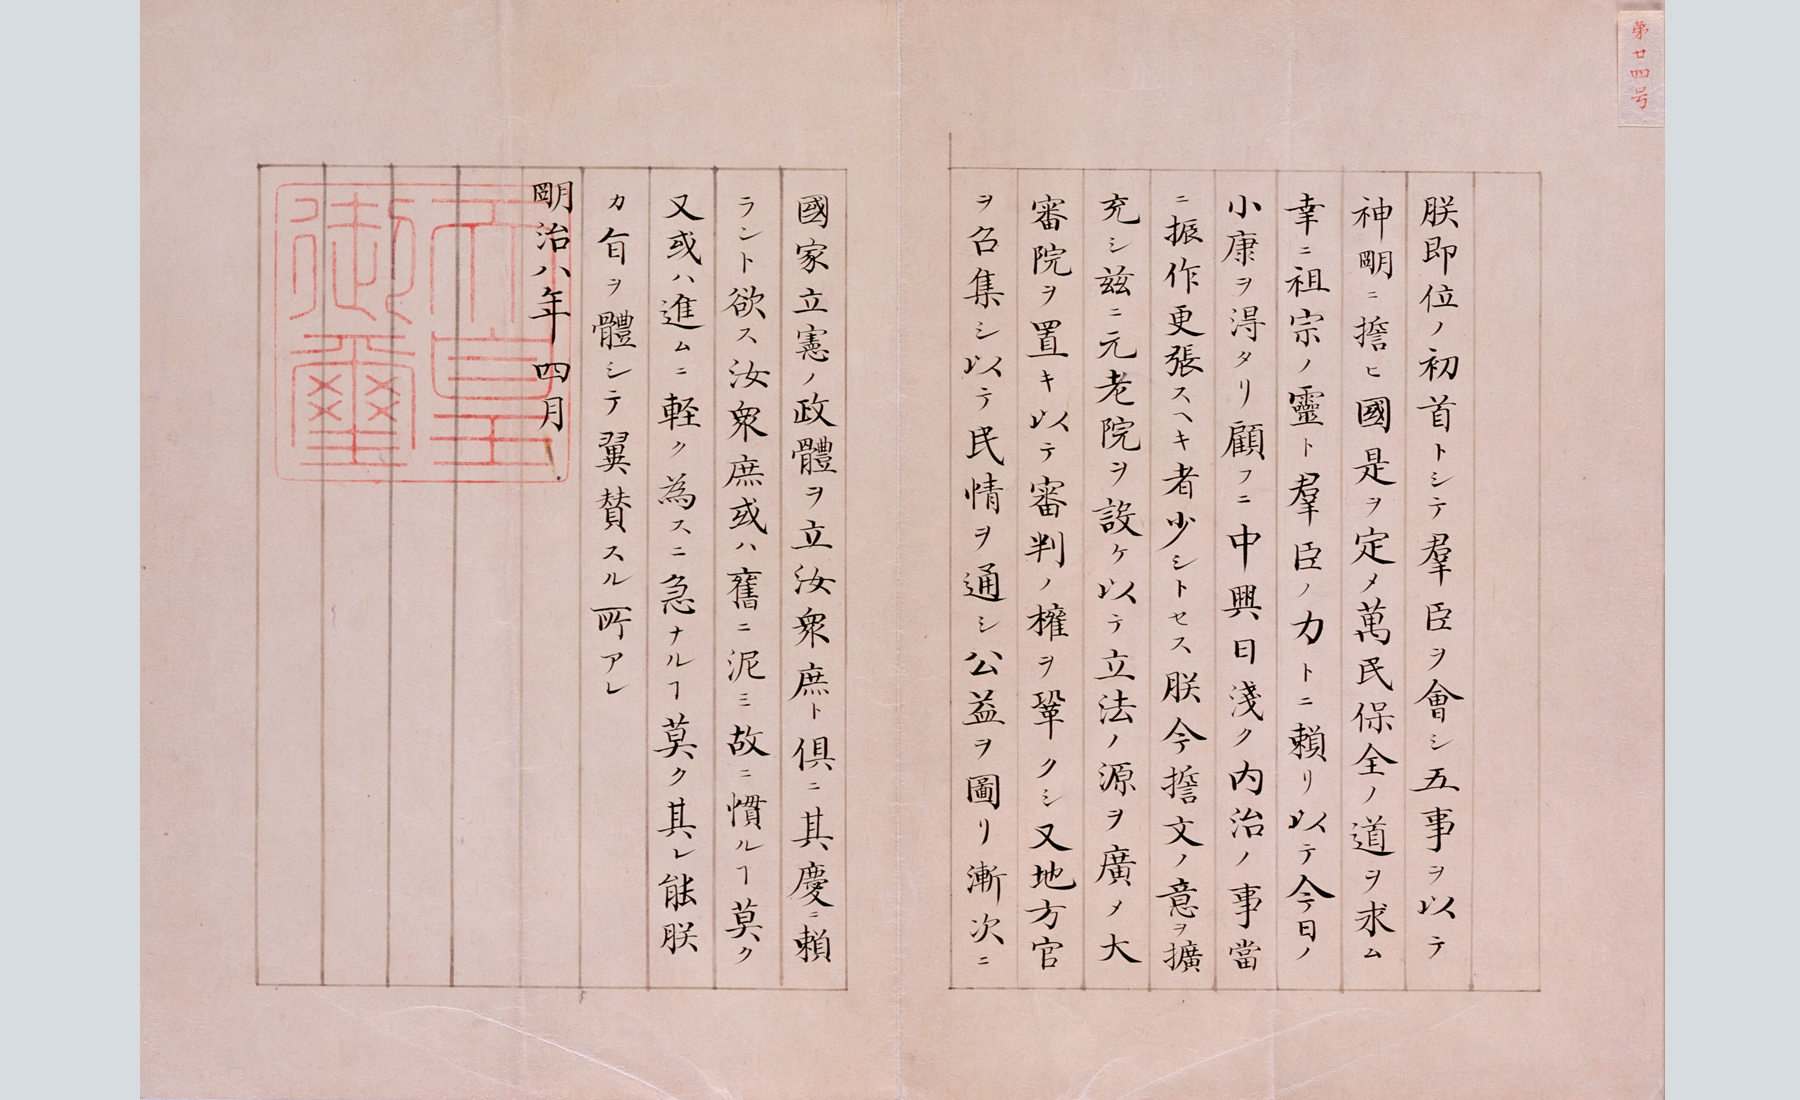 第廿四号
朕即位ノ初首トシテ羣臣ヲ會シ五事ヲ以テ
神明ニ誓ヒ國是ヲ定メ萬民保全ノ道ヲ求ム
幸ニ祖宗ノ靈ト羣臣ノ力トニ賴リ以テ今日ノ
小康ヲ得タリ顧フニ中興日淺ク内治ノ事當
ニ振作更張スヘキ者少シトセス朕今誓文ノ意ヲ擴
充シ茲ニ元老院ヲ設ケ以テ立法ノ源ヲ廣メ大
審院ヲ置キ以テ審判ノ權ヲ鞏クシ又地方官
ヲ召集シ以テ民情ヲ通シ公益ヲ圖リ漸次ニ
國家立憲ノ政體ヲ立汝衆庶ト俱ニ其慶ニ賴
ラント欲ス汝衆庶或ハ舊ニ泥ミ故ニ慣ルヿ莫ク
又或ハ進ムニ軽ク為スニ急ナルヿ莫ク其レ能朕
カ旨ヲ體シテ翼賛スル所アレ
明治八年四月
天皇
御璽